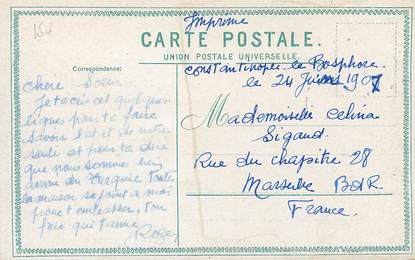 164
Imprimé
CARTE POSTALE.
UNION POSTALE UNIVERSELLE.
Correspondance:
Constantinople le Bosphore
le 24 Juin 1907
Chère Sœur
Je t'écris cet quelques
lignes pour te faire
savoir l'et de notre
santé et pour te dire
que nous sommes
en Turquie toute
la maison se joint a moi
pour t'embrasser, ton
qui t'aime
Mademoiselle Celina
Sigaud
Rue du chapitre 28
Marseille BdR.
France.